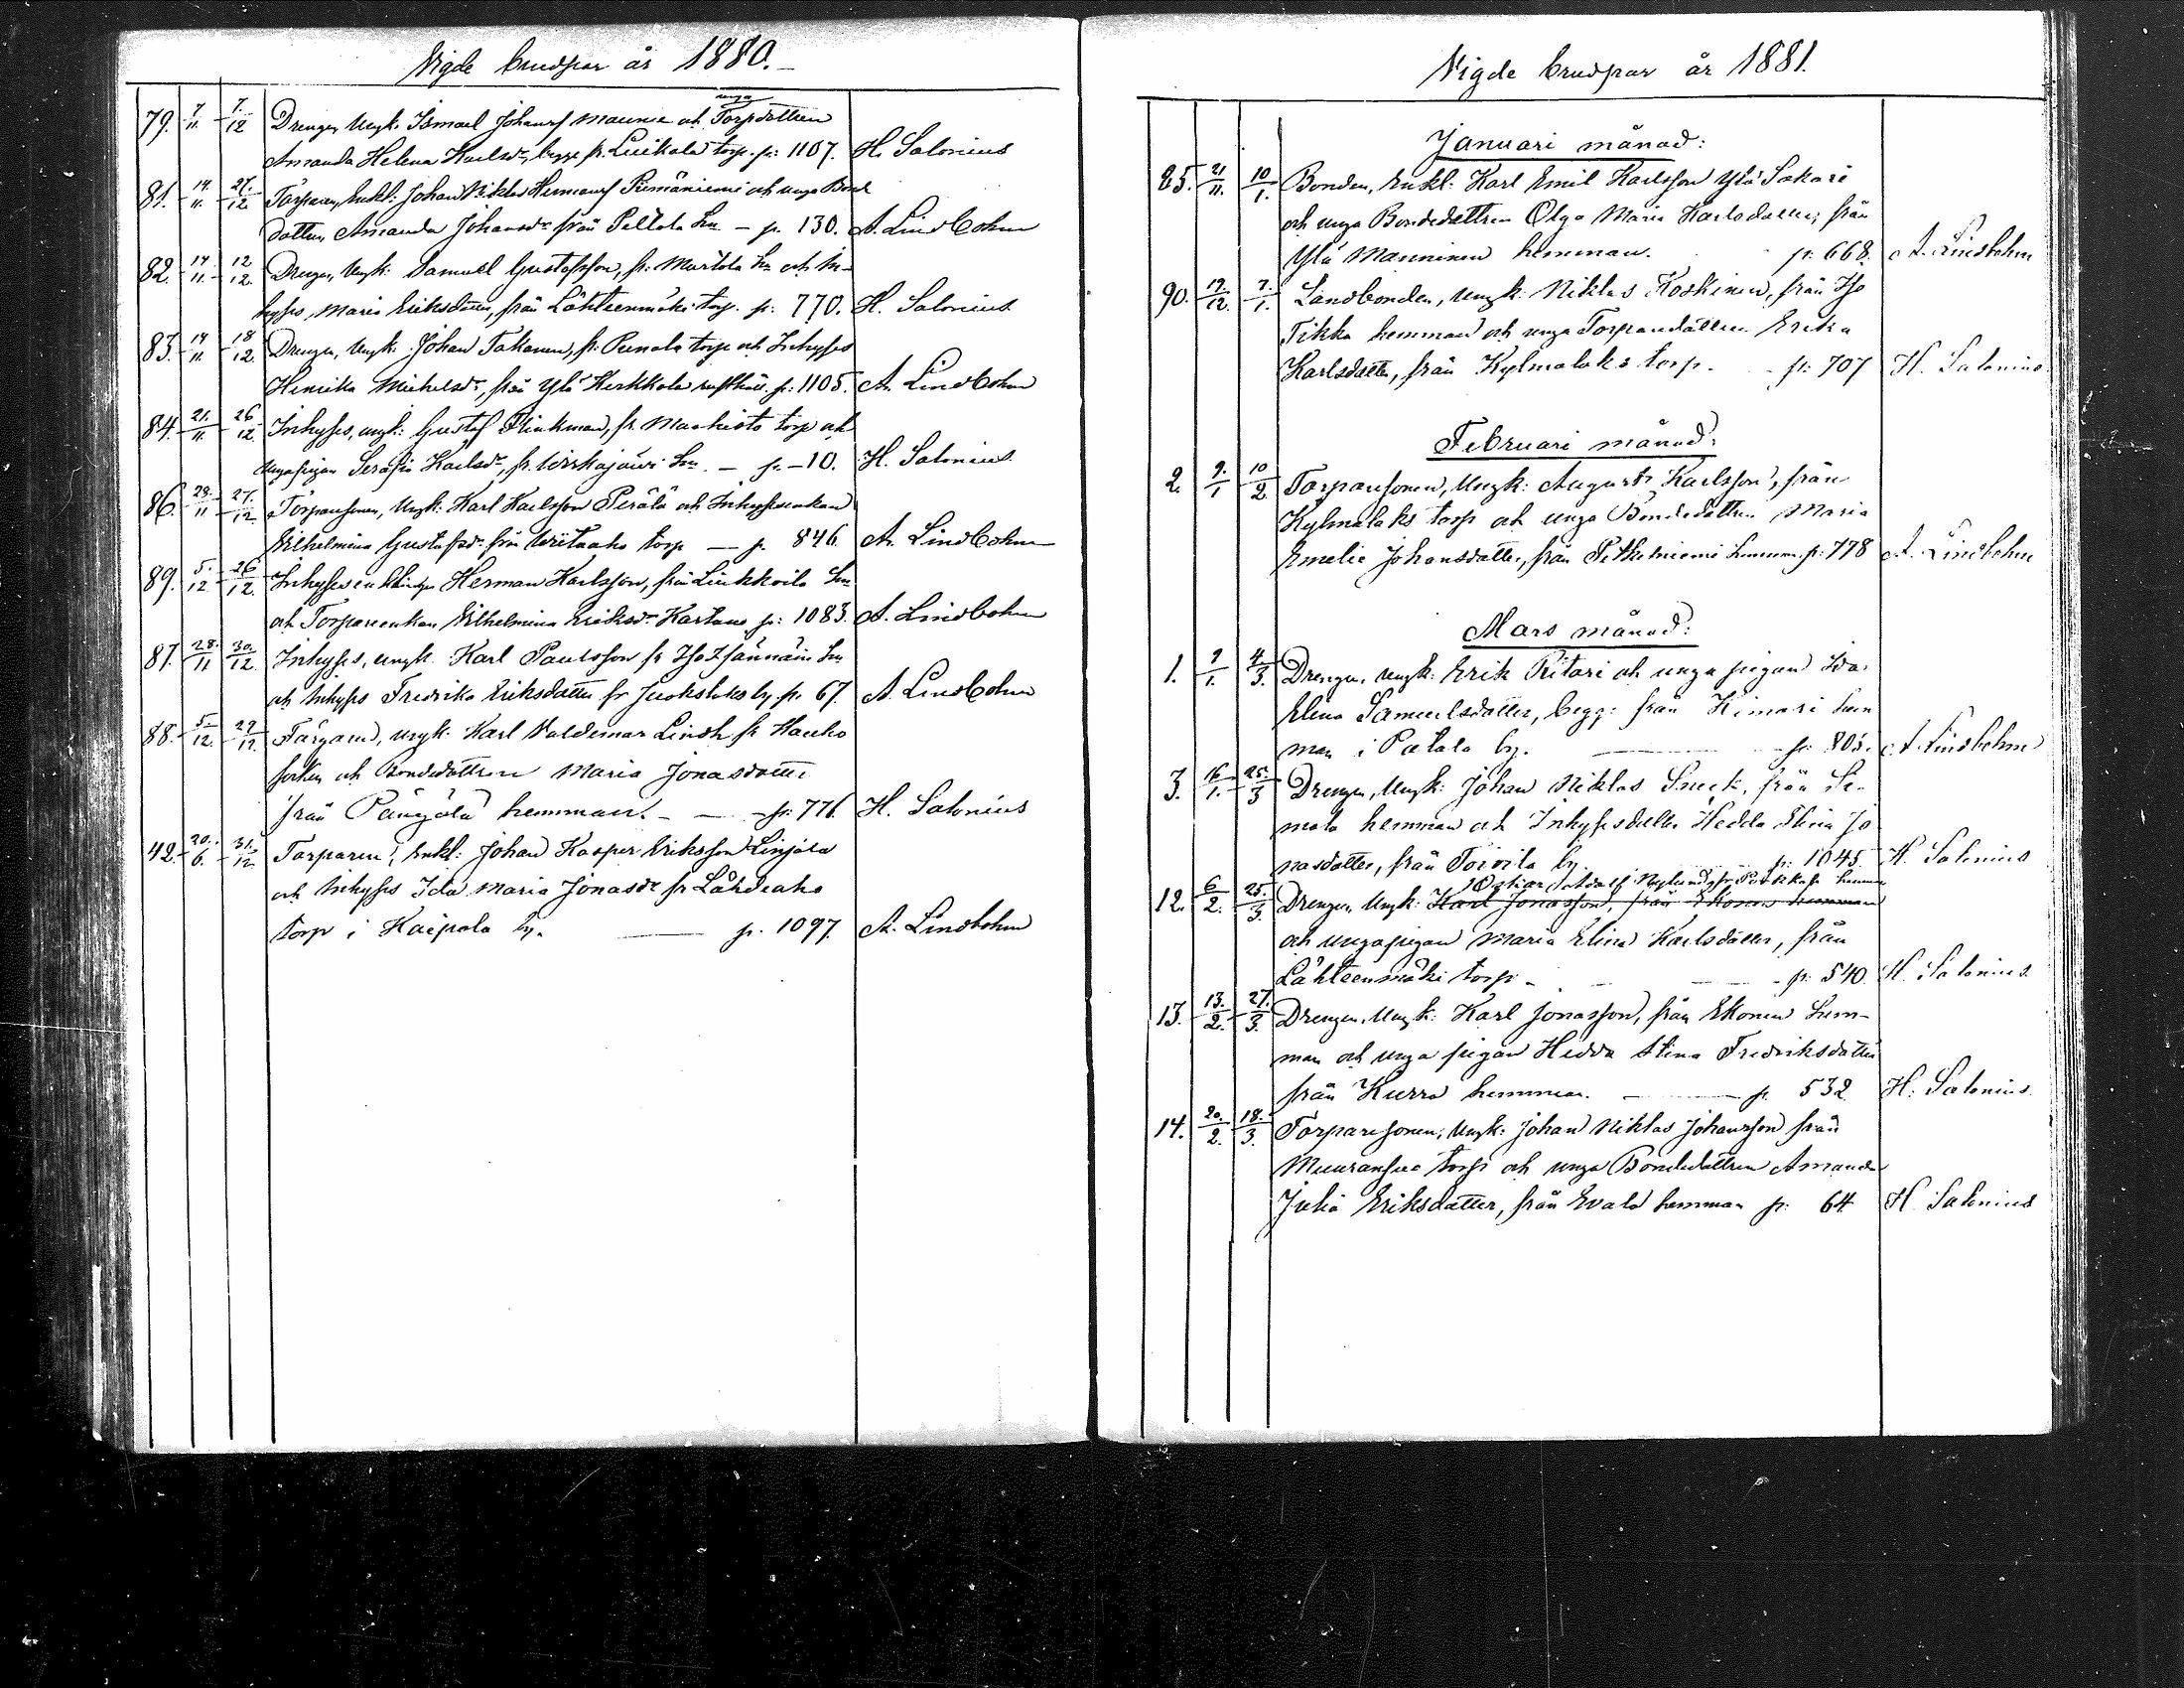 Vigde brudpar år 1880.
79. 7/11. 7./12 Drengen, Ungk. Ismael Johansf Maunu och unga Torpdottren
Amanda Helena Karlsdr, begge fr. Luikala torp. p: 1107. H. Salonius
81. 14./11. 27./12 Torparen, Enkl: Johan Niklas Hermansf Riemäniemi och unga Bond
dottren Amanda Johansdr från Peltola Hn – p. 130. A. Lindbohm
82. 14/11. 12/12. Drengen, Ungk: Samuel Gustafsson, fr. Martola Hn och In-
hyses Maria Eriksdotter, från Lähteenmäki torp. p: 770. H. Salonius
83. 14/11. 18/12. Drengen, Ungk. Johan Takanen, fr. torp och Inhyses
Henrika Michelsdr, från Ylä Kerkkola rusthåll. p: 1105. A. Lindbohm
84. 21./11. 26/12. Inhyses, ungk: Gustaf Flinkman, fr. Mankisto torp och
unga pigan Serafia Karlsdr, fr. Wirkajärvi Hn – p. – 10. H. Salonius
86. 28./11 27./12 Torparsonen, Ungk: Karl Karlsson Perälä och Inhysesenkan
Vilhelmina Gustafsdr från Wiitaaho torp – p. 846 A. Lindbohm
89. 5./12 26/12. Inhyses enklingen Herman Karlsson, från Liukkoila Hn
och Torpareenkan Vilhelmina Eriksdr Kartano p: 1083. A. Lindbohm
87. 28./11 30./12. Inhyses, ungk. Karl Paulsson fr Iso Hn
och Inhyses Fredrika Eriksdotter fr Juokslaks by. p: 67. A. Lindbohm
88. 5./12. 29/12. Färgaren, ungk. Karl Valdemar Lindh fr Hauho
socken och Bondedottren Maria Jonasdotter
från Pängälä hemman. – p: 776. H. Salonius
42. 20./6. 31./12. Torparen, Enkl: Johan Kasper Eriksson Linjala
och Inhyses Ida Maria Jonasdr fr Lähdeaho
torp i Kaipola by. – p. 1097. A. Lindbohm
Vigde brudpar år 1881.
Januari månad:
85. 21/11. 10/1. Bonden, Enkl: Karl Emil Karlsson Ylä Sakari
och unga Bondedottren Olga Maria Karlsdotter, från
Ylä Manninen hemman. p: 668. A. Lindbohm
90. 19./12. 7./1. Landbonden, ungk: Niklas Koskinen, från Iso
Tikka hemman och unga Torparedottren Erika
Karlsdotter, från Kylmälaks torp. – p: 707 H. Salonius
Februari månad:
2. 9./1 10/2. Torparsonen, Ungk: August Karlsson, från
Kylmälaks torp och unga Bondedottren Maria
Emelie Johansdotter, från Petkelniemi hemman. p: 778 A. Lindbohm
Mars månad:
1. 9/1. 4/3. Drengen, ungk: Erik Ritari och unga pigan Ida
Elina Samuelsdotter, begge från Himari hem
man i Patala by. – p: 805. A. Lindbohm
3. 16/1. 25./3 Drengen, Ungk: Johan Niklas Sneck, från Si-
mola hemman och Inhysesdotter Hedda Stina Jo
nasdotter, från Toivila by. p: 1045. H. Salonius
12. 6/2. 25./3. Drengen, Ungk: Karl Jonasson, från Ekonen hemman
Oskar Nylund, fr hemman
och unga pigan Maria Elina Karlsdotter, från
Lähteenmäki torp – p: 540 H. Salonius
13. 13./2. 27./3. Drengen, Ungk: Karl Jonasson, från Ekonen hem-
man och unga pigan Hedda Stina Fredriksdotter
från Kurra hemman. – p. 532 H. Salonius.
14. 20./2. 18./3. Torparesonen, Ungk: Johan Niklas Johansson från
Muuransuo torp och unga Bondedottren Amanda
Julia Eriksdotter, från Evala hemman p: 64 H. Salonius